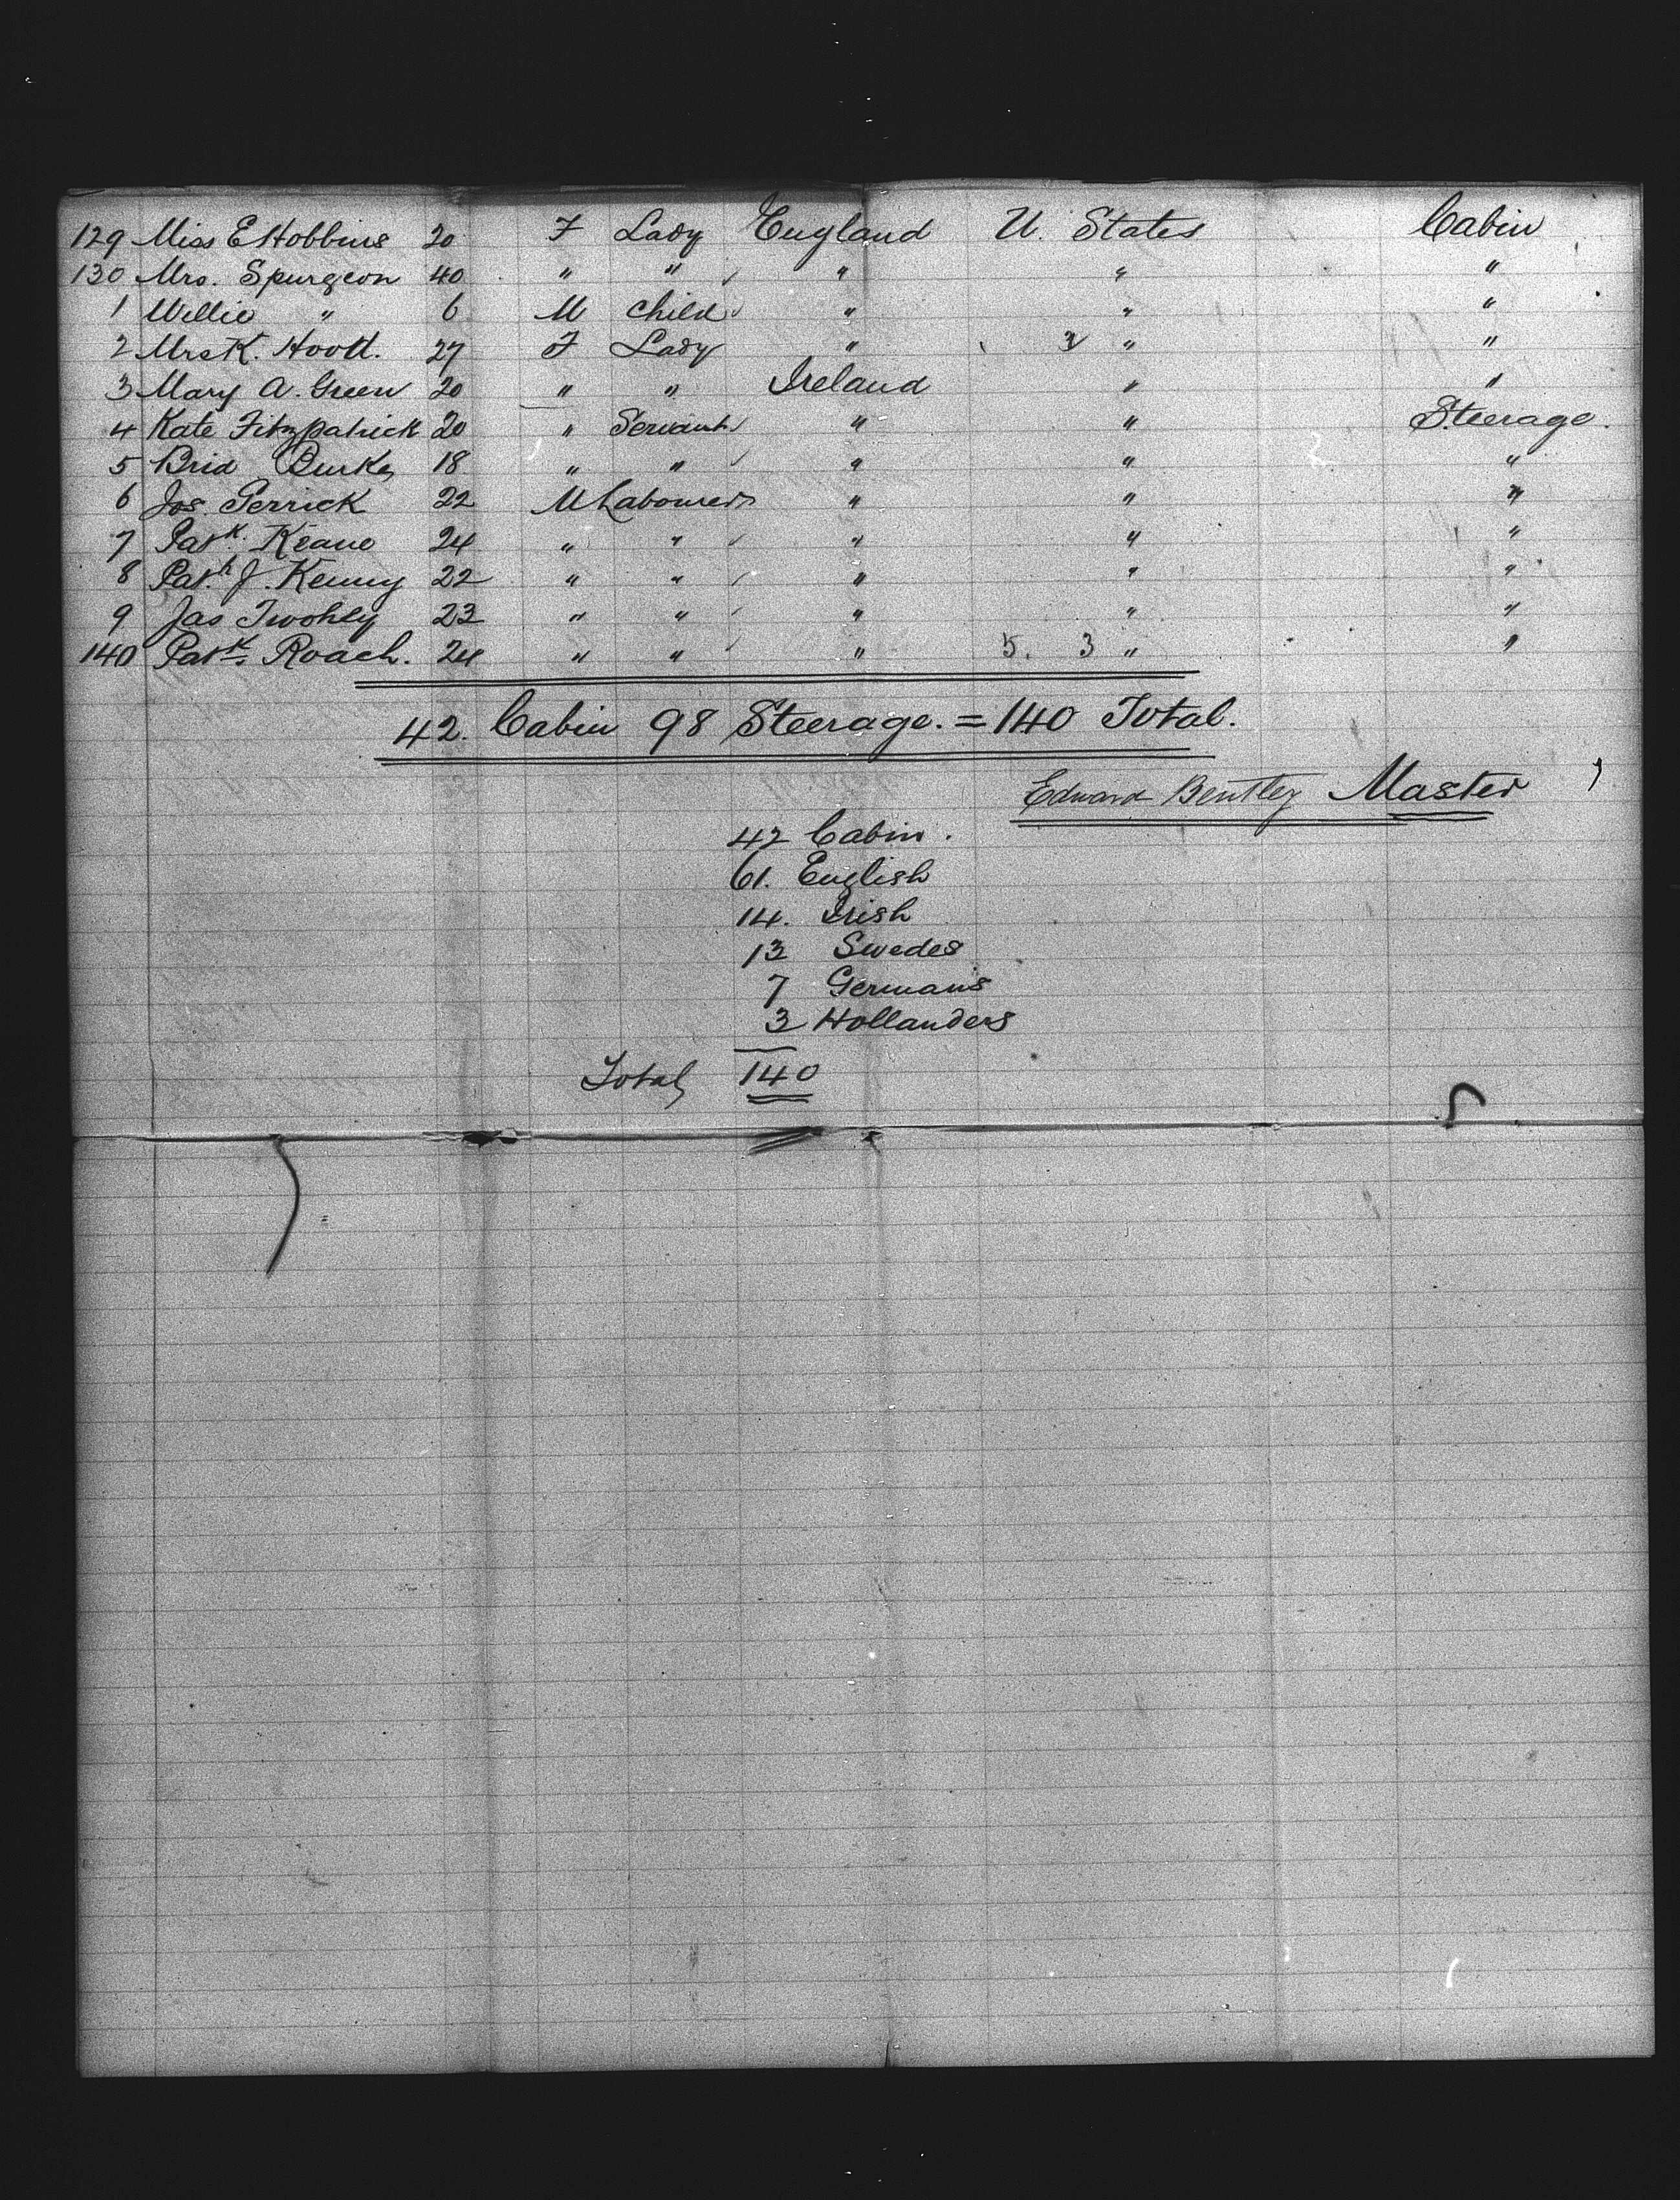 129 Miss E Hobbins 20 F Lady England U. States Cabin
130 Mrs. Spurgeon 40 " " " " "
1 Willie " 6 M Child " " "
2 Mrs K. 27 F Lady " 3 " "
3 Mary A. Green 20 " " Ireland " "
4 Kate Fitzpatrick 20 " Servant " " Steerage.
5 Brid Burke 18 " " " " "
6 Jos 22 M Labourer " " "
7 Patk. Keane 24 " " " " "
8 Patk J. Kenny 22 " " " " "
9 Jas Twohey 23 " " " " "
140 Patk. Roach. 24 " " " 5. 3 " "
42. Cabin 98 Steerage. = 140 Total.
Edward Bentley Master
42 Cabin.
61. English
14. Irish
13 Swedes
7 Germans
3 Hollanders
Total 140